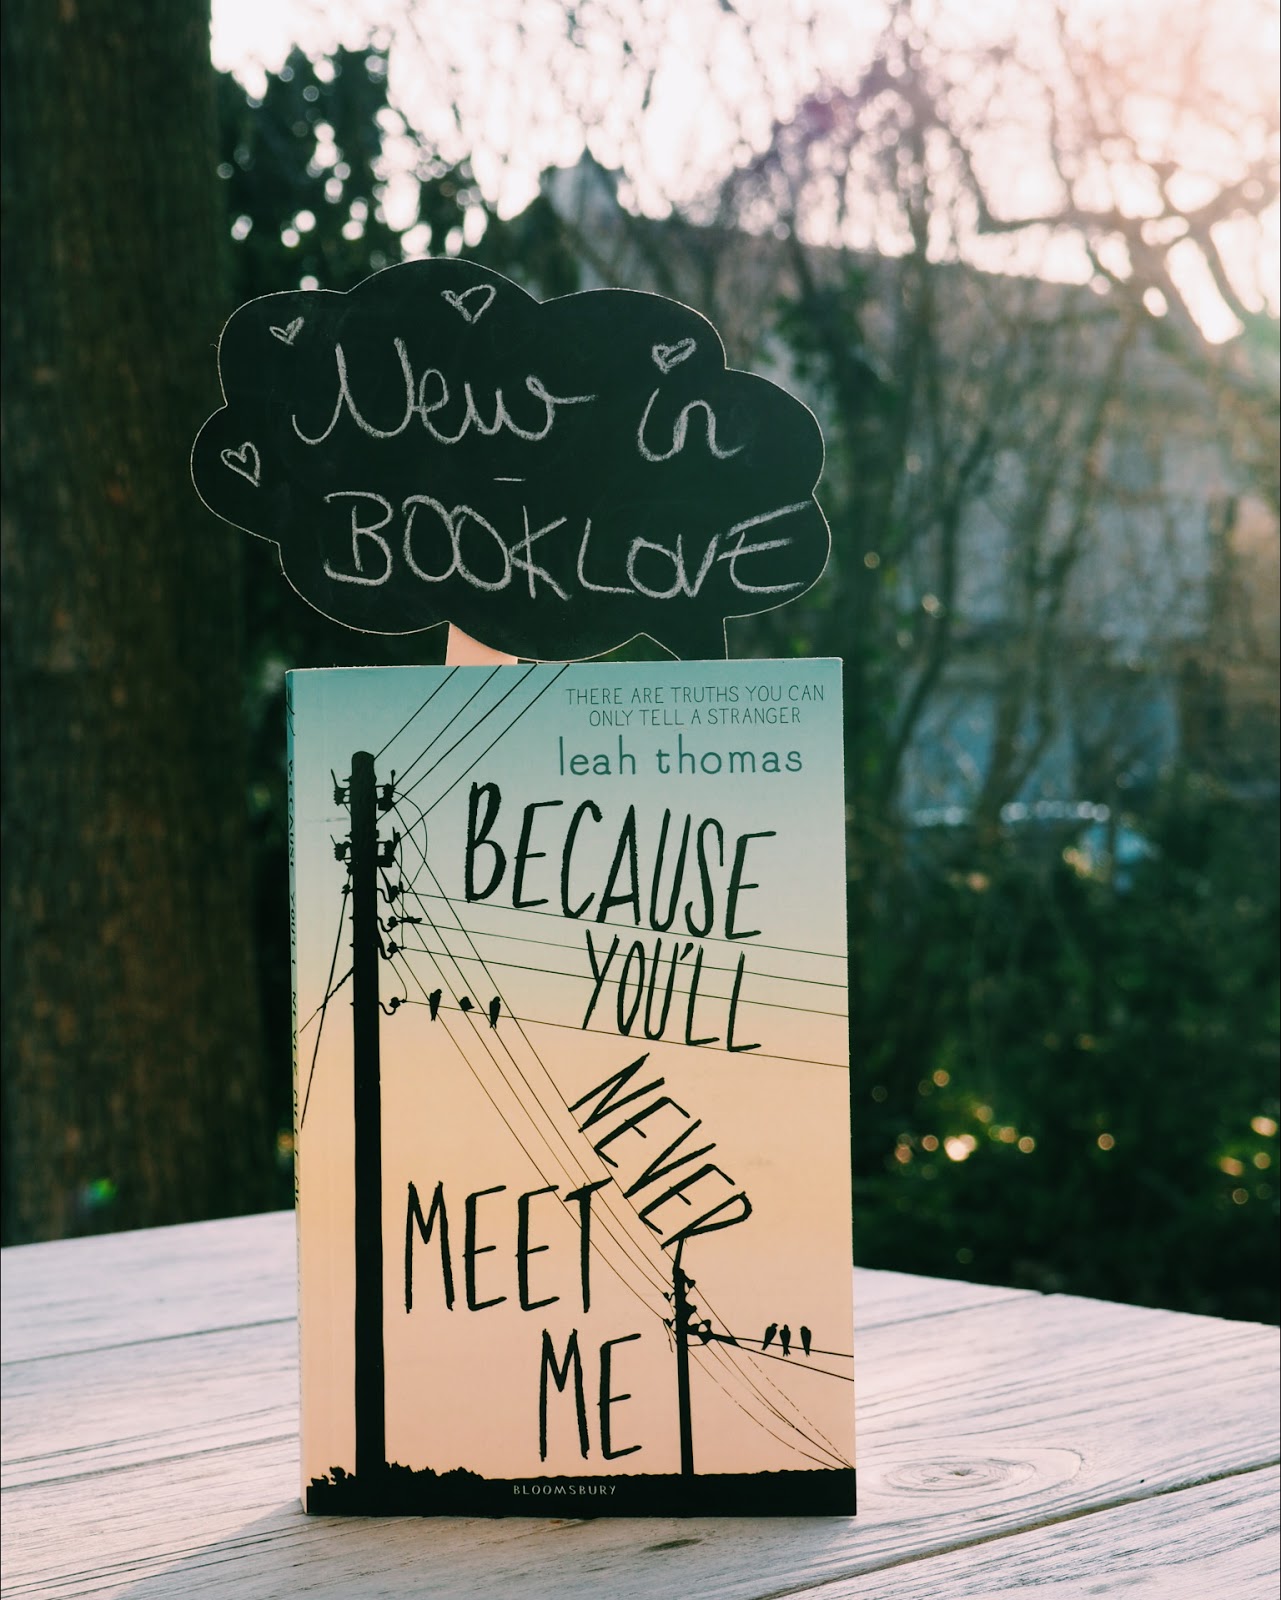 New in
BOOKLOVE
THERE ARE TRUTHS YOU CAN
ONLY TELL A STRANGER
leah thomas
BECAUSE
YOU'LL
NEVER
MEET
ME
BLOOMSBURY